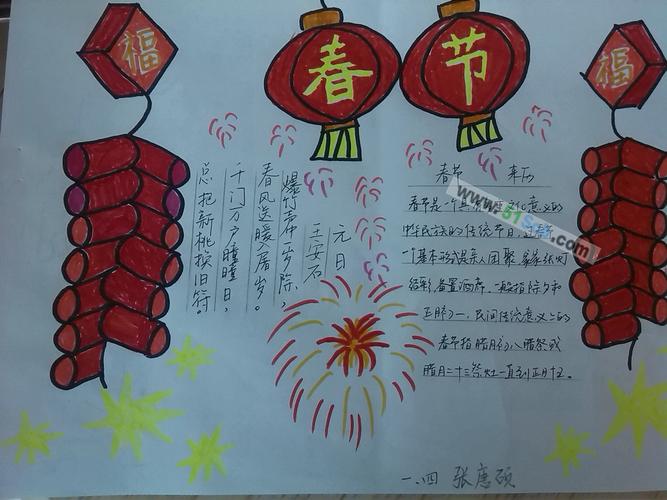 福
春
节
福
元日
王安石
爆竹声一岁除,
春风送暖入屠岁。
千门万户瞳瞳日,
总把新桃换旧符。
春节 来历
春节是一个 意义的
中华民族的传统节日,
一个基本形式是亲人团聚 家家张灯
结彩 备置酒席. 一般指除夕和
正月初一,民间传统意义上的
春节指腊月初八腊祭或
腊月二十三祭灶一直到正月十五。
一、四 张惠硕